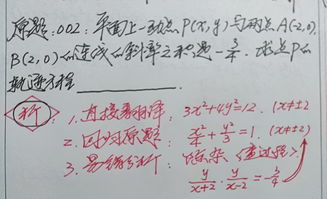 原题:002:平面上一动点P(x,y)与两点A(-2,0),
B(2,0)的连线的斜率之积是-3/4.求点P的
轨迹方程
析 1.直接写标准: 3x²+4y²=12.(x≠±2)
2.回归原题: x²/4+y²/3=1.(x≠±2)
3.易错分析:
y/x+2·y/x-2=-3/4